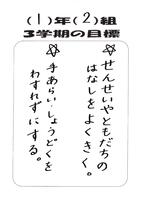 (1)年(2)組
3学期の目標
☆せんせいやともだちの
はなしをよくきく。
☆手あらい・しょうどくを
わすれずにする。